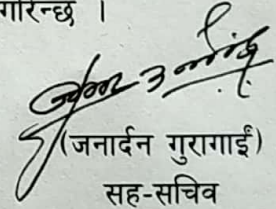 गरिन्छ ।
(जनार्दन गुरागाईं)
सह-सचिव